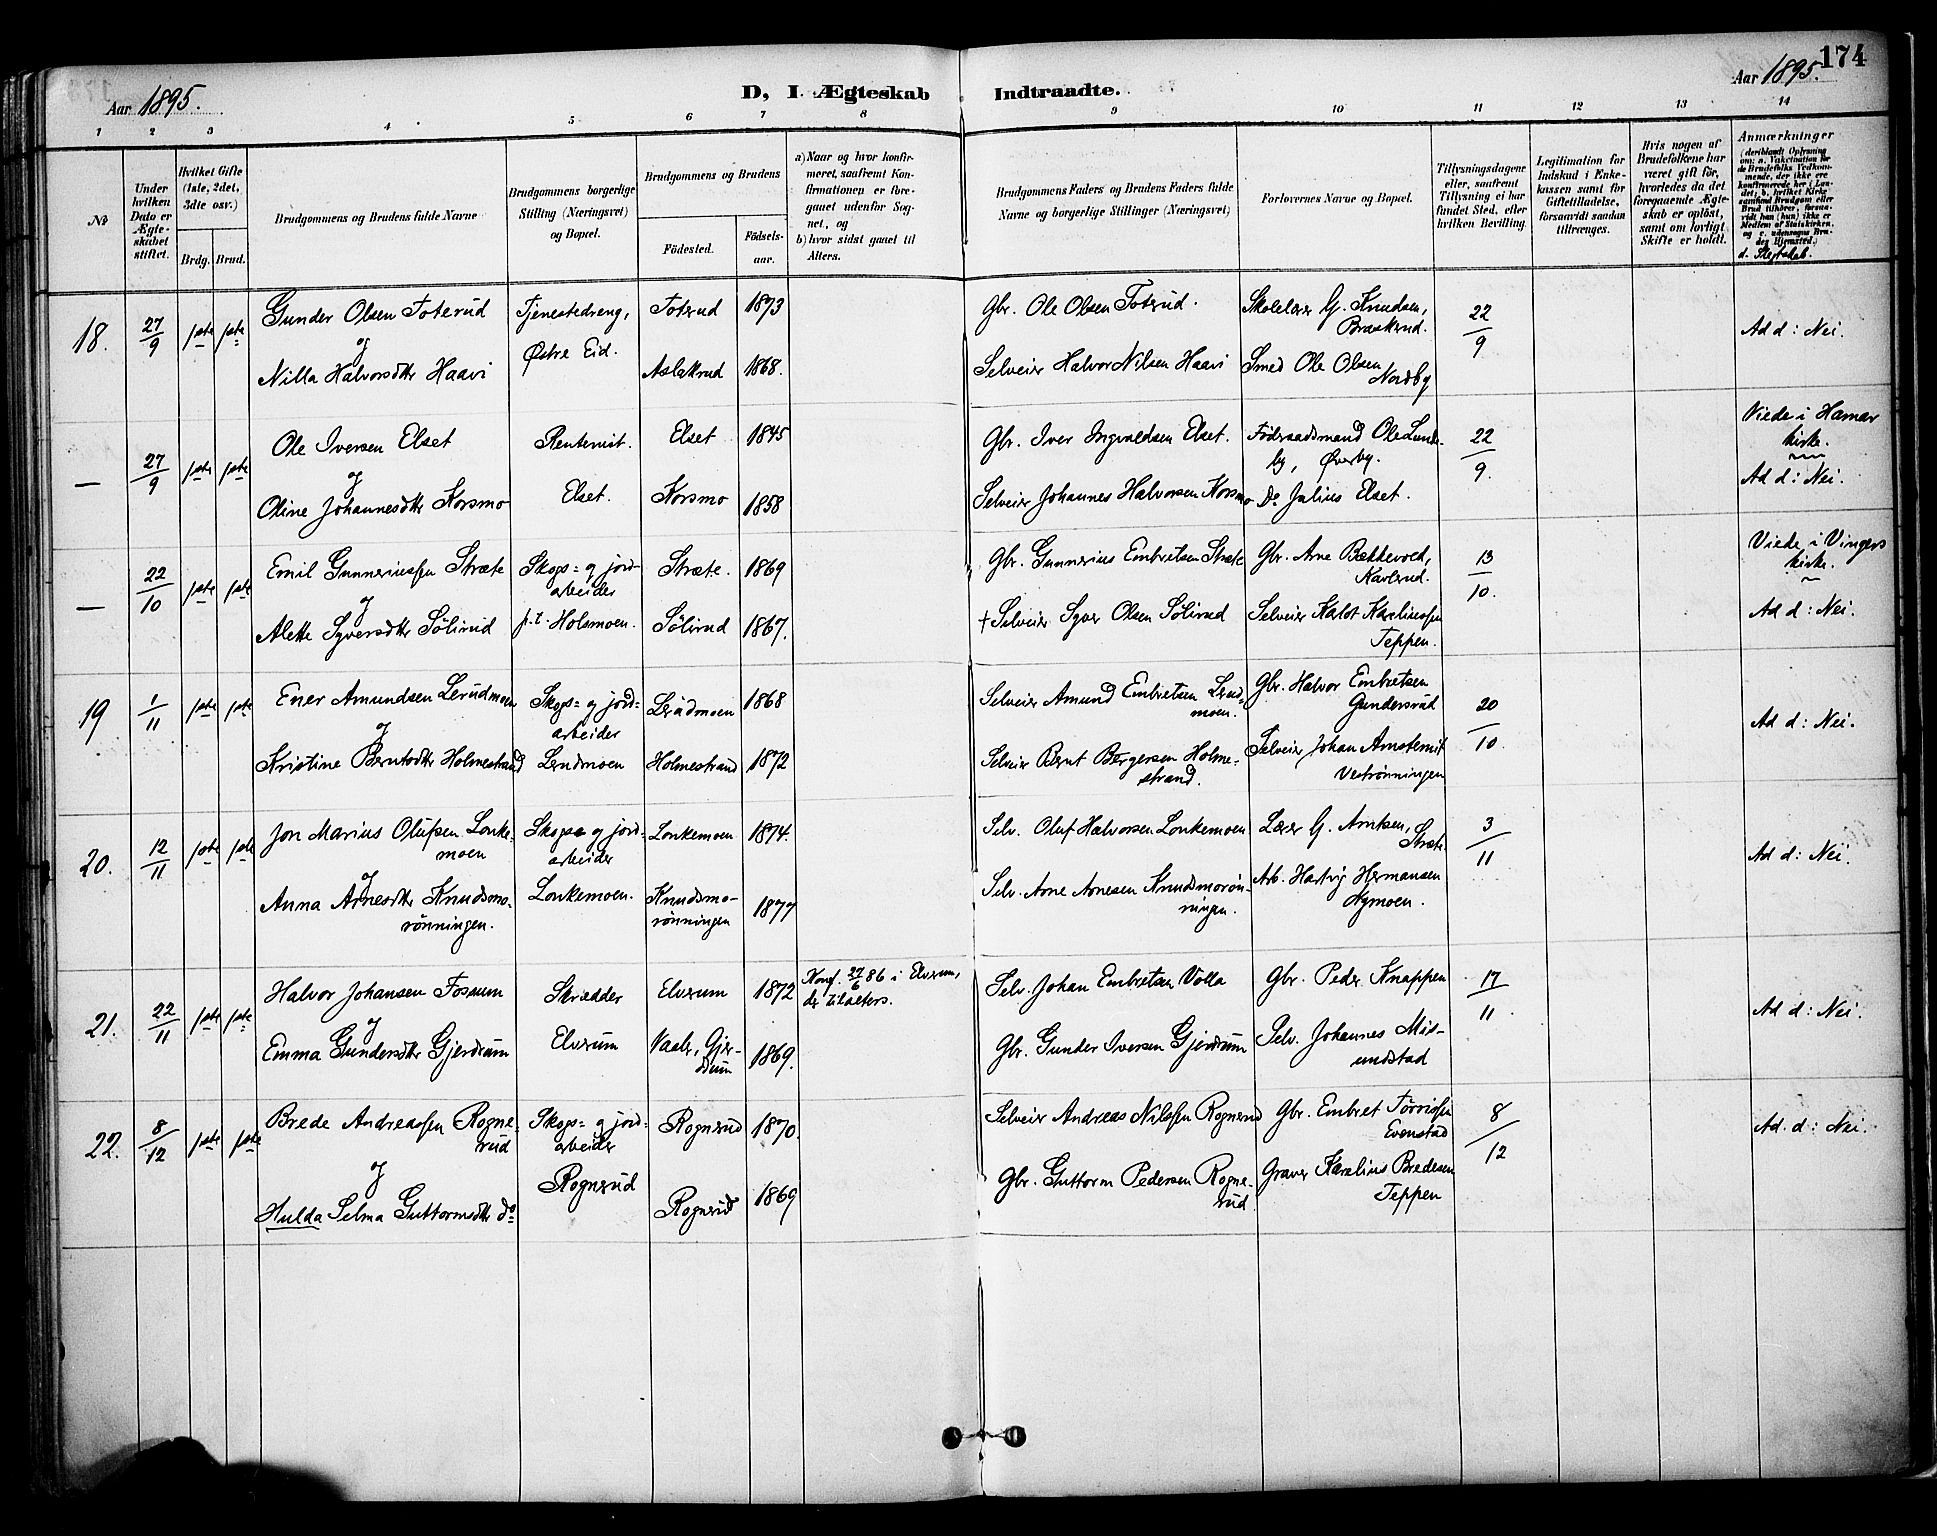 174
Aar 1895.
D, I Ægteskab Indtraadte.
Aar 1895.
1 2 3 4 5 6 7 8 9 10 11 12 13 14
№
Under hvilken Dato er Ægteskabet stiftet.
Hvilket Gifte (1ste, 2det, 3dte osv.)
Brdg. Brud.
Brudgommens og Brudens fulde Navne
Brudgommens borgerlige Stilling (Næringsvei) og Bopæl.
Brudgommens og Brudens
Födested.
Födselsaar.
a) Naar og hvor konfirmeret, saafremt Konfirmationen er foregaaet udenfor Sognet, og
b) hvor sidst gaaet til Alters.
Brudgommens Faders og Brudens Faders fulde Navne og borgerlige Stillinger (Næringsvei)
Forlovernes Navne og Bopæl.
Tillysningsdagene eller, saafremt Tillysning ei har fundet Sted, efter hvilken Bevilling.
Legitimation for Indskud i Enkekassen samt for Giftetilladelse, forsaavidt saadan tiltrænges.
Hvis nogen af Brudefolkene har været gift för, hvorledes da det foregaaende Ægteskab er oplöst, samt om lovligt Skifte er holdt.
Anmærkninger
(deriblandt Oplysning om: a. Vakcination for de Brudefolks Vedkommende, der ikke ere konfirmerede her i Landet; b. hvilket Kirkesamfund Brudgom eller Brud tilhörer, forsaavidt han (hun) ikke er Medlem af Statskirken, og c. udensogns Brudes Hjemsted.)
d. Slegtskab.
18. 27/9 1ste 1ste
Gunder Olsen Toterud
og
Nilla Halvorsdtr Haavi
Tjenestedreng,
Østre Eid.
Toterud 1873
Aslakrud 1868.
Gbr. Ole Olsen Toterud.
Selveier Halvor Nilsen Haavi
Skolelærer G. Knudsen,
Braskerud.
Smed Ole Olsen
Nordby
22/9
Ad d: Nei.
— 27/9 1ste 1ste
Ole Iversen Elset
og
Oline Johannesdtr Korsmo
Rentenist.
Elset.
Elset 1845
Korsmo 1858
Gbr. Iver Ingvaldsen Elset.
Selveier Johannes Halvorsen Korsmo
Föderaadsmand Ole Lundeby, Øverby.
Do Julius Elset.
22/9.
Viede i Hamar
kirke.
Ad d: Nei.
— 22/10 1ste 1ste
Emil Gunneriussen Stræte
og
Alette Syversdtr Sölirud
Skogs= og jordarbeider
p.t. Holsmoen.
Stræte. 1869
Sölirud 1867.
Gbr. Gunnerius Embretsen Stræte
† Selveier Syver Olsen Sölirud
Gbr. Arne Bækkevold,
Karlsrud.
Selveier Karlot Karliussen
Teppen.
13/10.
Viede i Vingers
kirke.
Ad d: Nei.
19 1/11 1ste 1ste
Ener Amundsen Lerudmoen
og
Kristine Berntsdtr Holmestrand
Skogs= og jord=
arbeider
Lerudmoen
Lerudmoen 1868
Holmestrand 1872
Selveier Amund Embretsen Lerudmoen.
Selveier Bernt Bergersen Holmestrand.
Gbr. Halvor Embretsen
Gundersrud
Selveier Johan
Vestrønningen
20/10.
Ad d: Nei.
20. 12/11 1ste 1ste
Jon Marius Olufsen Lonkemoen
og
Anna Arnesdtr Knudsmorönningen.
Skogs og jord=
arbeider
Lonkemoen.
Lonkemoen 1874.
Knudsmorönningen 1877
Selv. Oluf Halvorsen Lonkemoen
Selv. Arne Arnesen Knudsmorönningen.
Lærer G. Arntsen,
Stræte
Arb. Hartvig Hermansen
Kymoen.
3/11
Ad d: Nei.
21. 22/11 1ste 1ste
Halvor Johansen Fossum
og
Emma Gundersdtr Gjerdrum
Skrædder
Elverum
Elverum 1872
Vaaler, Gjerdrum 1869.
Konf. 27/6 86 i Elverum,
der til alters.
Selv. Johan Embretsen Volla
Gbr. Gunder Iversen Gjerdrum
Gbr. Peder Knappen
Selv. Johannes Mismundstad
17/11.
Ad d: Nei.
22. 8/12 1ste 1ste
Brede Andreassen Rognerud
og
Hulda Selma Guttormsdtr do
Skogs= og jord=
arbeider
Rognerud
Rognerud 1870.
Rognerud 1869
Selveier Andreas Nilssen Rognerud
Gbr. Guttorm Pedersen Rognerud
Gbr. Embret Törrissen
Evenstad
Graver Karelius Bredesen
Teppen
8/12
Ad. d: Nei.